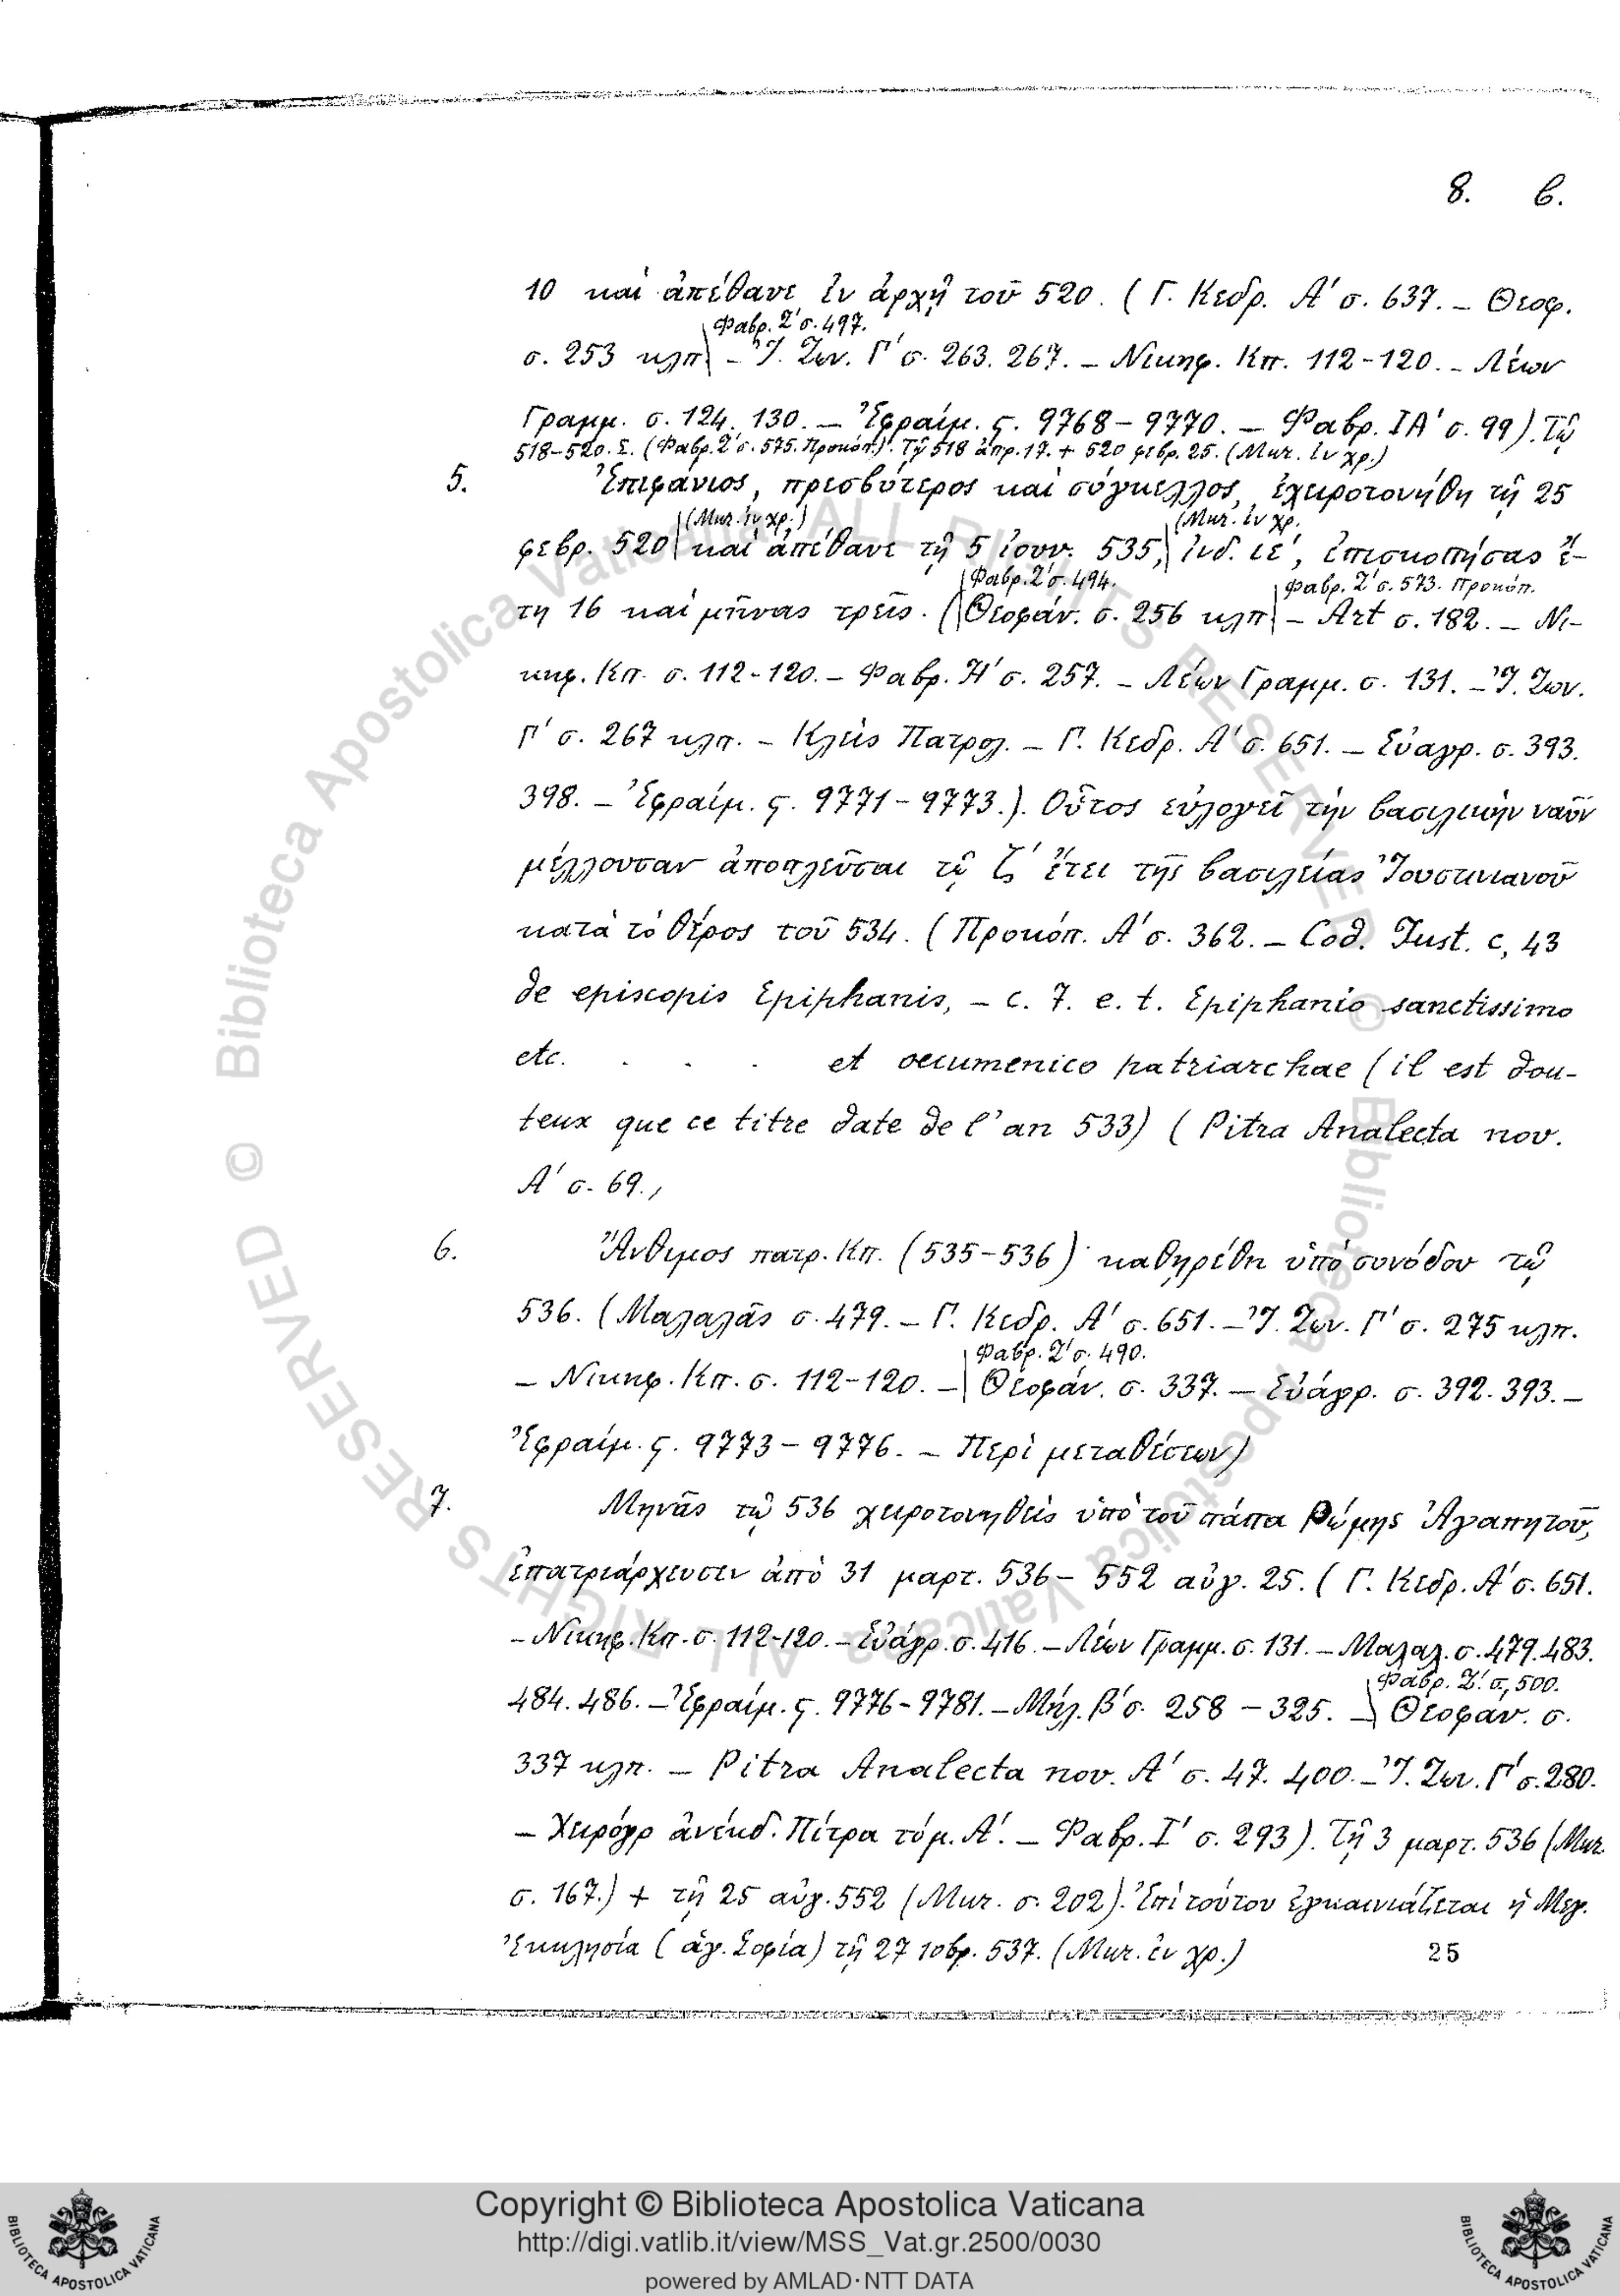 8. β.
10 καὶ ἀπέθανε ἐν ἀρχῇ τοῦ 520. (Γ. Κεδρ. Α΄ σ. 637. – Θεοφ.
Φαβρ. Ζ΄ σ. 497.
σ. 253 κλπ – Ἰ. Ζων. Γ΄ σ. 263. 267. – Νικηφ. Κπ. 112-120. – Λέων
Γραμμ. σ. 124. 130. – Ἐφραίμ. ς. 9768 – 9770. – Φαβρ. ΙΑ΄ σ. 99). Τῷ
518-520. Σ. (Φαβρ. Ζ΄ σ. 575. Προκόπ.). Τῇ 518 ἀπρ. 17. + 520 φεβρ. 25. (Μικ. ἐν χρ.)
5. Ἐπιφάνιος, πρεσβύτερος καὶ σύγκελλος, ἐχειροτονήθη τῇ 25
(Μικ. ἐν χρ.) (Μικ. ἐν χρ.
φεβρ. 520 καὶ ἀπέθανε τῇ 5 ἰουν. 535, ἰνδ. ιε΄, ἐπισκοπήσας ἔ-
Φαβρ. Ζ΄ σ. 494. Φαβρ. Ζ΄ σ. 573. Προκόπ.
τη 16 καὶ μῆνας τρεῖς. (Θεοφάν. σ. 256 κλπ – Art σ. 182. – Νι-
κηφ. Κπ. σ. 112-120. – Φαβρ. Η΄ σ. 257. – Λέων Γραμμ. σ. 131. – Ἰ. Ζων.
Γ΄ σ. 267 κλπ. – Κλεὶς Πατρολ. – Γ. Κεδρ. Α΄ σ. 651. – Εὐαγρ. σ. 393.
398. – Ἐφραίμ. ς. 9771 – 9773.). Οὗτος εὐλογεῖ τὴν βασιλικὴν ναῦν
μέλλουσαν ἀποπλεῦσαι τῷ ζ΄ ἔτει τῆς βασιλείας Ἰουστινιανοῦ
κατὰ τὸ θέρος τοῦ 534. (Προκόπ. Α΄ σ. 362. – Cod. Just. c, 43
de episcopis Epiphanis, – c. 7. e. t. Epiphanio sanctissimo
etc. . . . et oecumenico patriarchae (il est dou-
teux que ce titre date de l'an 533) (Pitra Analecta nov.
Α΄ σ. 69.,
6. Ἄνθιμος πατρ. Κπ. (535-536) καθῃρέθη ὑπὸ συνόδου τῷ
536. (Μαλαλᾶς σ. 479. – Γ. Κεδρ. Α΄ σ. 651. – Ἰ. Ζων. Γ΄ σ. 275 κλπ.
Φαβρ. Ζ΄ σ. 490.
– Νικηφ. Κπ. σ. 112-120. – Θεοφάν. σ. 337. – Εὐάγρ. σ. 392. 393. –
Ἐφραίμ. ς. 9773 – 9776. – Περὶ μεταθέσεων)
7. Μηνᾶς τῷ 536 χειροτονηθεὶς ὑπὸ τοῦ πάπα Ρώμης Ἀγαπητοῦ,
ἐπατριάρχευσεν ἀπὸ 31 μαρτ. 536 – 552 αὐγ. 25. (Γ. Κεδρ. Α΄ σ. 651.
– Νικηφ. Κπ. σ. 112-120. – Εὐάγρ. σ. 416. – Λέων Γραμμ. σ. 131. – Μαλαλ. σ. 479. 483.
Φαβρ. Ζ΄. σ, 500.
484. 486. – Ἐφραίμ. ς. 9776 – 9781. – Μήλ. Β΄ σ. 258 – 325. – Θεοφαν. σ.
337 κλπ. – Pitra Analecta nov. Α΄ σ. 47. 400. – Ἰ. Ζων. Γ΄ σ. 280.
– Χειρόγρ ἀνέκδ. Πίτρα τόμ. Α΄. – Φαβρ. Ι΄ σ. 293). Τῇ 3 μαρτ. 536 (Μικ.
σ. 167.) + τῇ 25 αὐγ. 552 (Μικ. σ. 202). Ἐπὶ τούτου ἐγκαινιάζεται ἡ Μεγ.
Ἐκκλησία (ἁγ. Σοφία) τῇ 27 10βρ. 537. (Μικ. ἐν χρ.)
25
© Biblioteca Apostolica Vaticana ALL RIGHTS RESERVED
© Biblioteca Apostolica Vaticana ALL RIGHTS RESERVED
Copyright © Biblioteca Apostolica Vaticana
http://digi.vatlib.it/view/MSS_Vat.gr.2500/0030
powered by AMLAD·NTT DATA
BIBLIOTECA APOSTOLICA VATICANA
BIBLIOTECA APOSTOLICA VATICANA